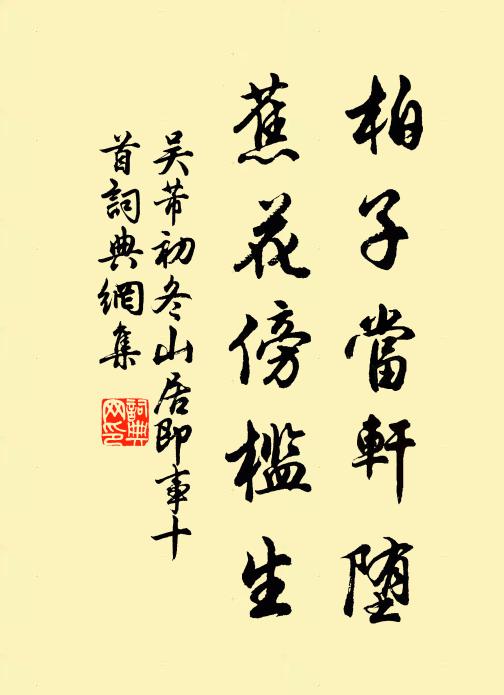 柏子當軒堕
蕉花傍檻生
吴芾初冬山居即事十
首詞典網集
詞典
网印